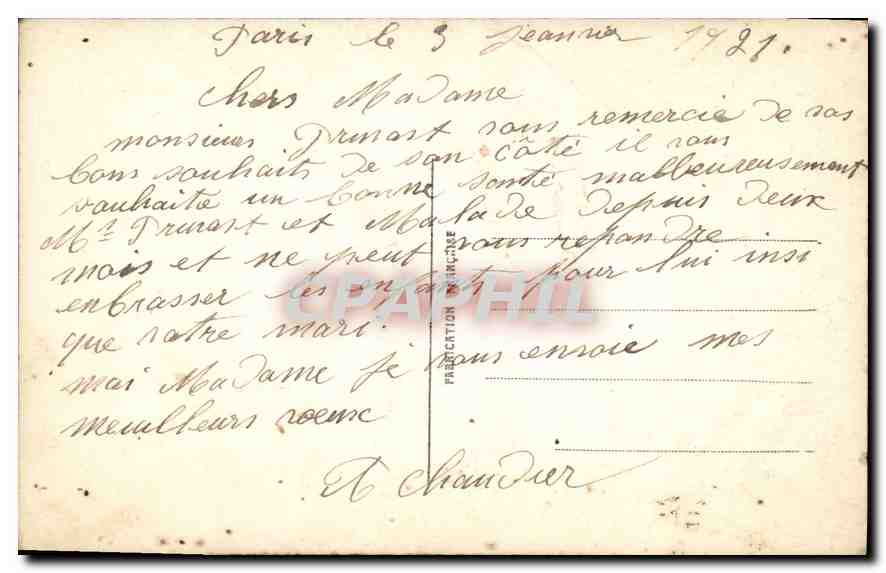 Paris le 3 Jeanvier 1921.
Chers Madame
monsieur Prunast vous remercie de vos
bons souhaits de son côté il vous
souhaite un bonne santé malheureusement
Mr Prunast et Malade depuis deux
mois et ne peut vous repondre
enbrasser les enfants pour lui insi
que votre mari.
moi Madame je vous envoie mes
meuilleurs voeux
Chaudier
FABRICATION FRANÇAISE
CPAPHIL